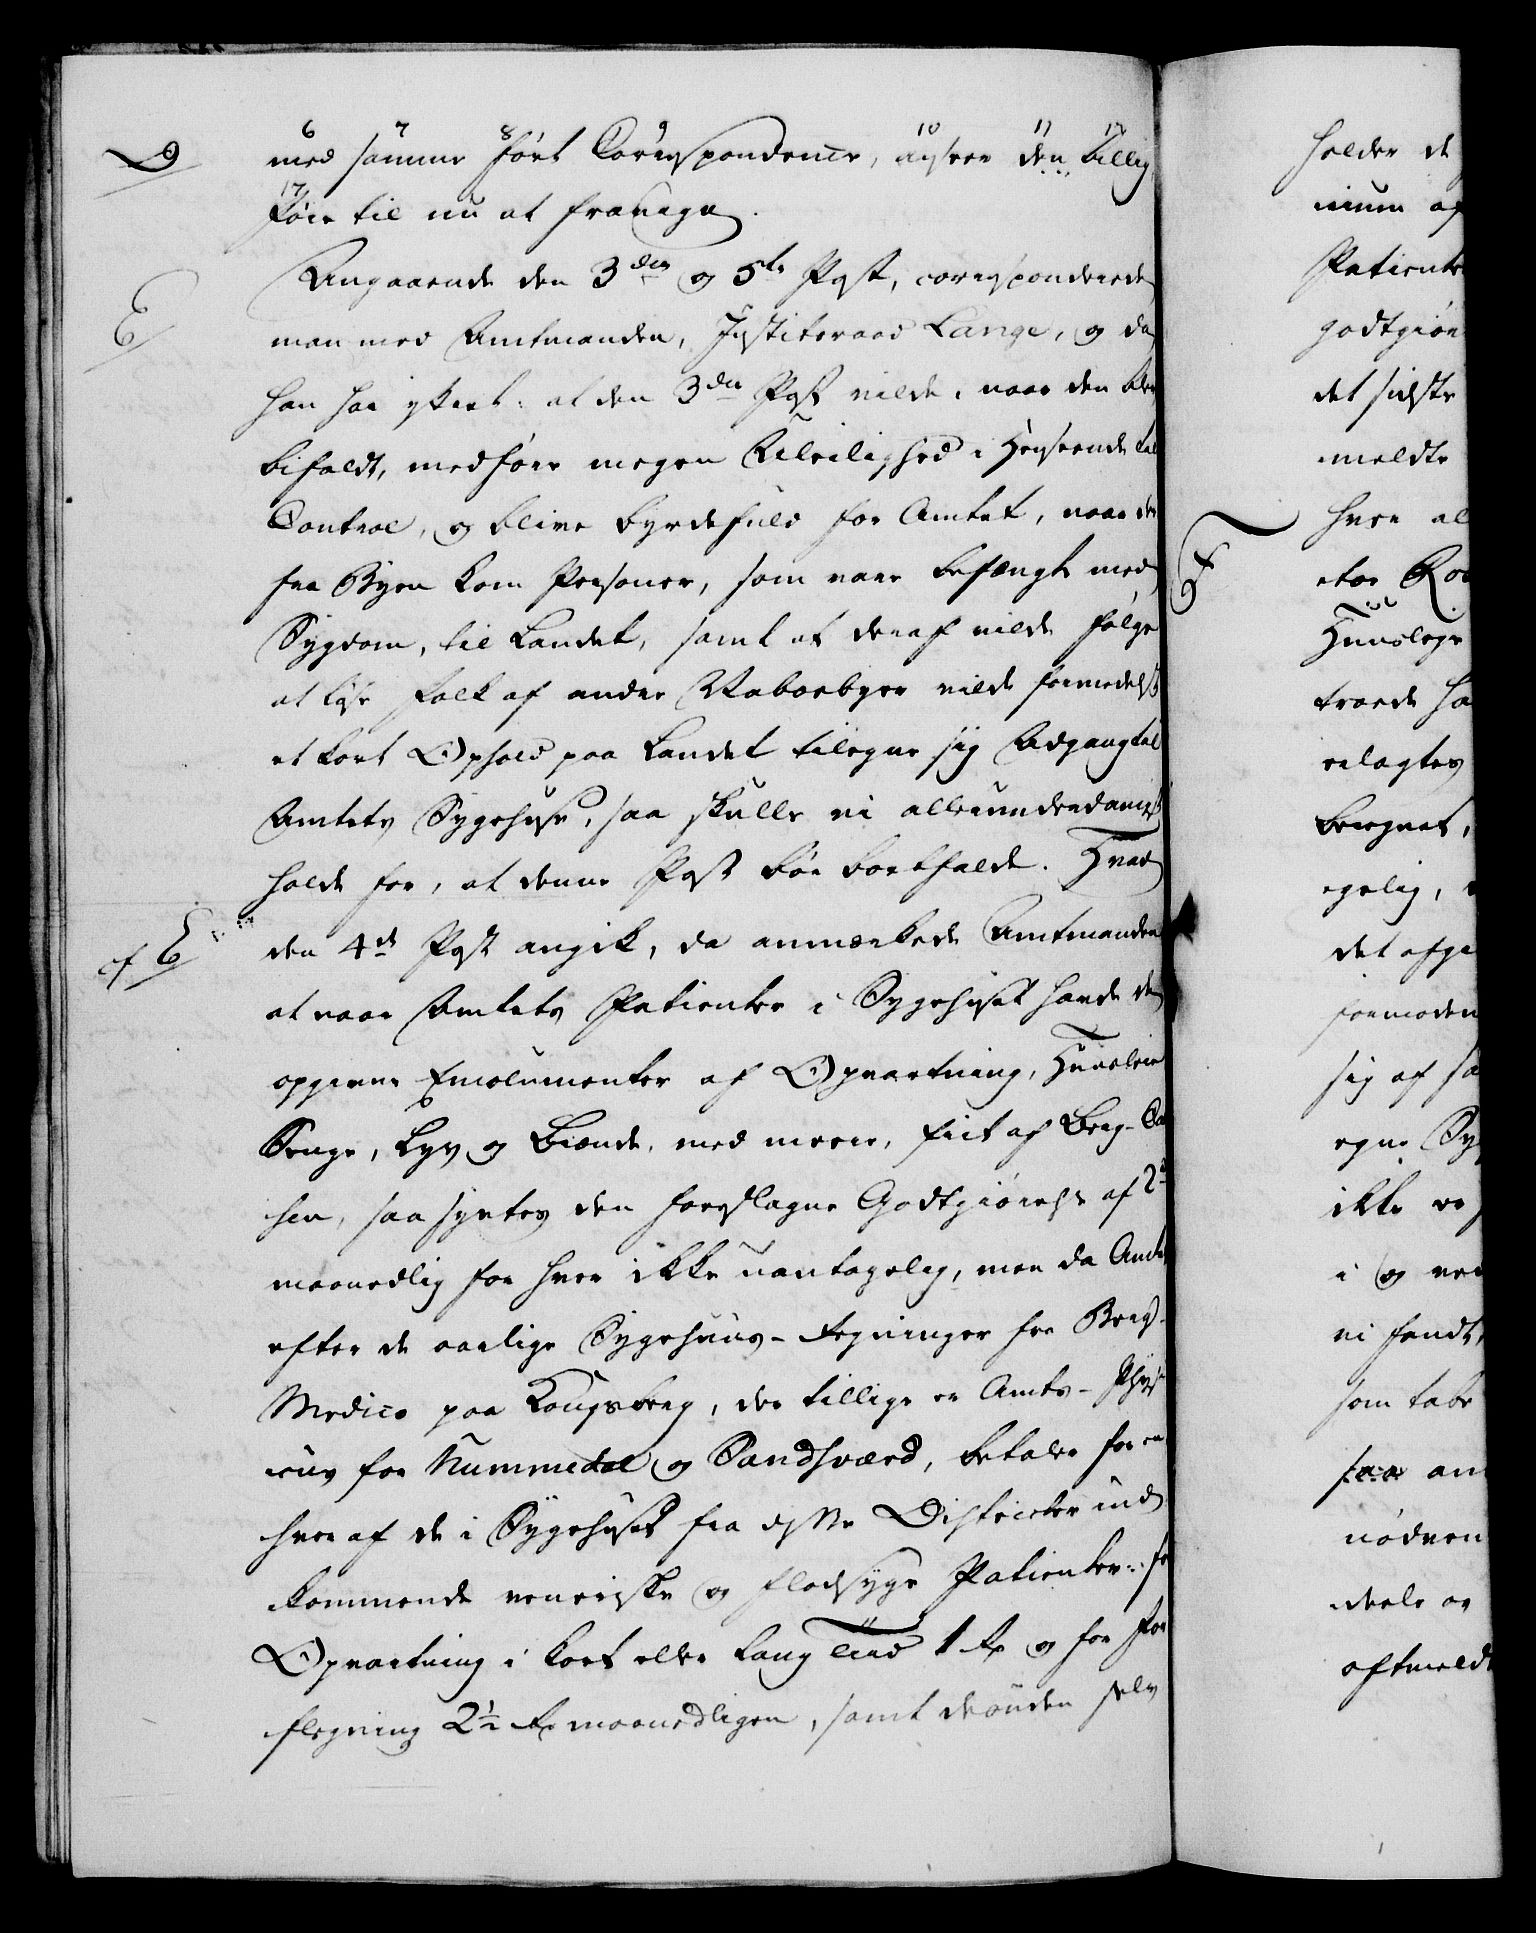 D
med samme ført Correspondence, ansees den billig
Føie til nu at fravige.
E
Angaaende den 3die og 5te Post, corresponderede
man med Amtmanden, Justitsraad Lange, og da
han har yttret: at den 3die Post vilde, naar den blev
bifaldt, medføre megen Uleilighed i Henseende til
Control, og blive byrdefuld for Amtet, naar der
fra Byen kom Personer, som vare befængte med
Sygdom, til Landet, samt at deraf vilde følge
at løse Folk af andre Naboebyer vilde formedelst
et kort Ophold paa Landet tilegne sig Adgang til
Amtets Sygehuse, saa skulle vi allerunderdanigst
holde for, at denne Post bør bortfalde. Hvad
af E
den 4de Post angik, da anmærkede Amtmanden
at naar Amtets Patienter i Sygehuset havde de
opgivne Emolumenter af Opvartning, Huusleie
Senge, Lys og Brænde, med mere, frit af Berg-Cas-
sen, saa syntes den foreslagne Godtgiørelse af 2
maanedlig for hver ikke uantagelig, men da Amtet
efter de aarlige Sygehuus-Regninger fra Berg-
Medico paa Kongsberg, der tillige er Amts-Physi-
cus for Nummedal og Sandsværd, betaler for en
hver af de i Sygehuset fra disse Districter ind-
kommende veneriske og fladsyge Patienter: for
Opvartning i kort eller lang Tiid 1 Rd og for For-
flegning 2½ Rd maanedligen, samt desuden selv
holder de
nium af
Patienter
godtgiøre
det sidste
meldte
F
hver al
Huuslege
traede ha
relagtes
beregnet,
det afgi
formoden
sig af sa
egne Sy
ikke ve
i og ved
vi fandt,
som tabe
saa an
nødven
deele og
oftmeldt